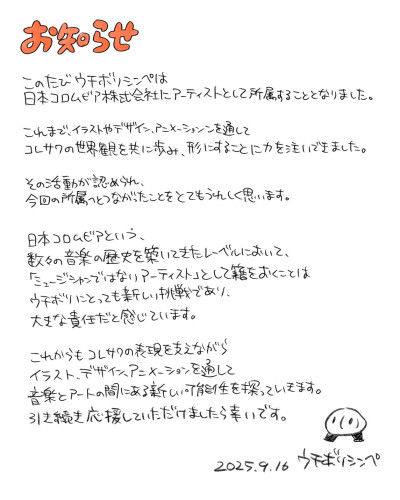 お知らせ
このたび ウチボリシンペは
日本コロムビア株式会社にアーティストとして所属することとなりました。
これまで、イラストやデザイン、アニメーションを通して
コレサワの世界観を共に歩み、形にすることに力を注いできました。
その活動が認められ、
今回の所属へとつながったことをとてもうれしく思います。
日本コロムビアという、
数々の音楽の歴史を築いてきたレーベルにおいて、
「ミュージシャンではないアーティスト」として籍をおくことは
ウチボリにとっても新しい挑戦であり、
大きな責任だと感じています。
これからも コレサワの表現を支えながら
イラスト、デザイン、アニメーションを通して
音楽とアートの間にある新しい可能性を探っていきます。
引き続き応援していただけましたら幸いです。
2025.9.16 ウチボリシンペ